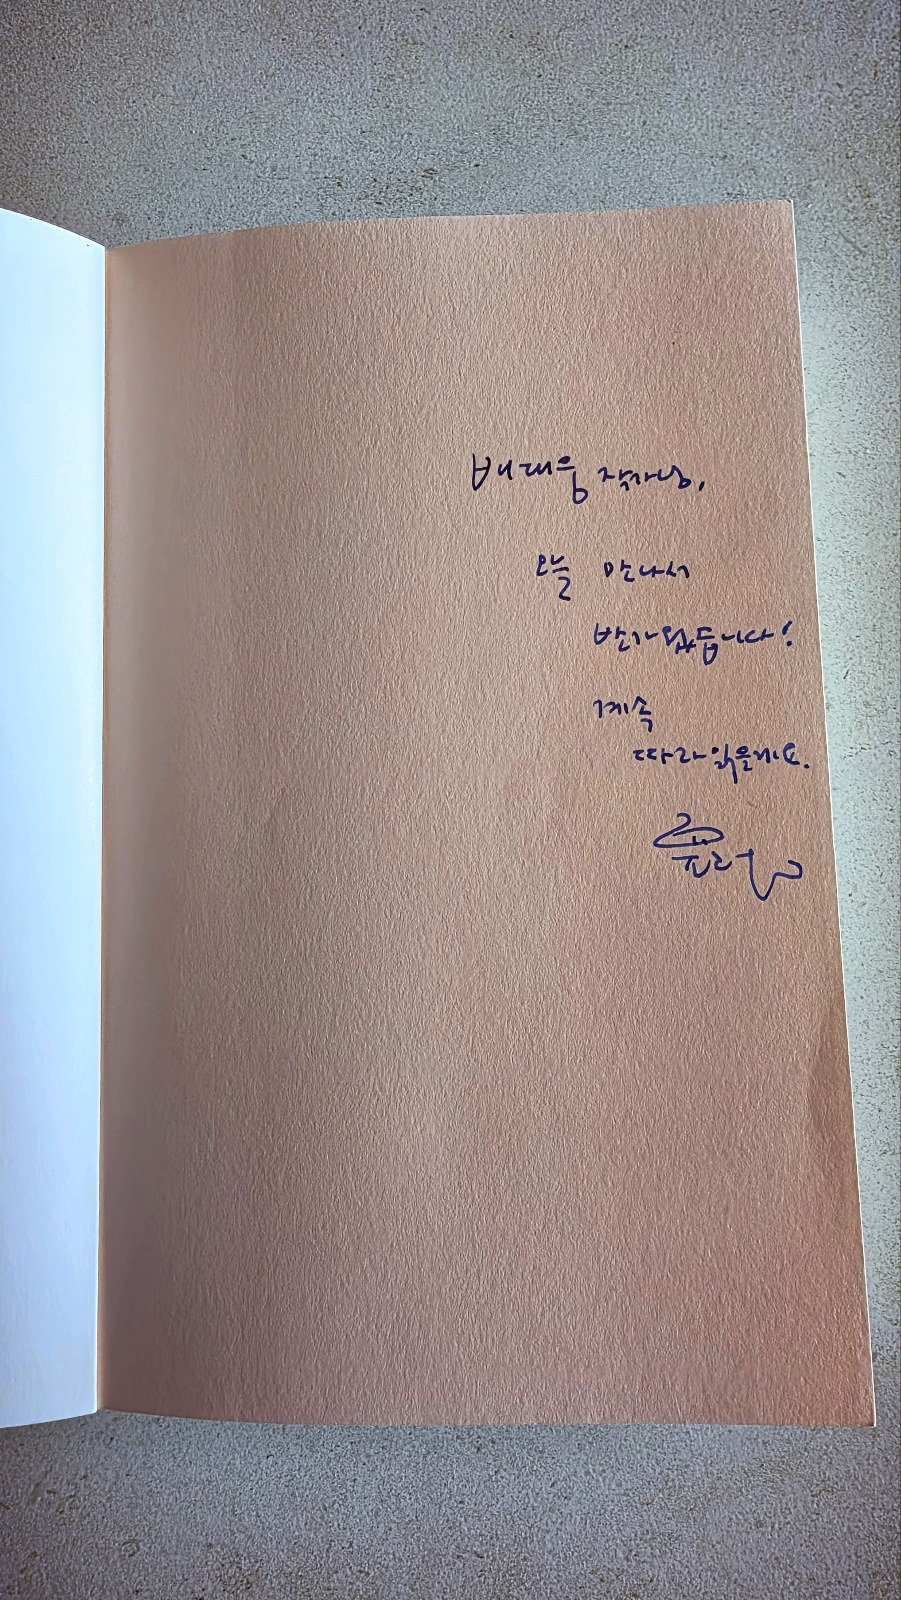 배대웅 작가님,
오늘 만나서
반가웠습니다!
계속
따라 읽을게요.